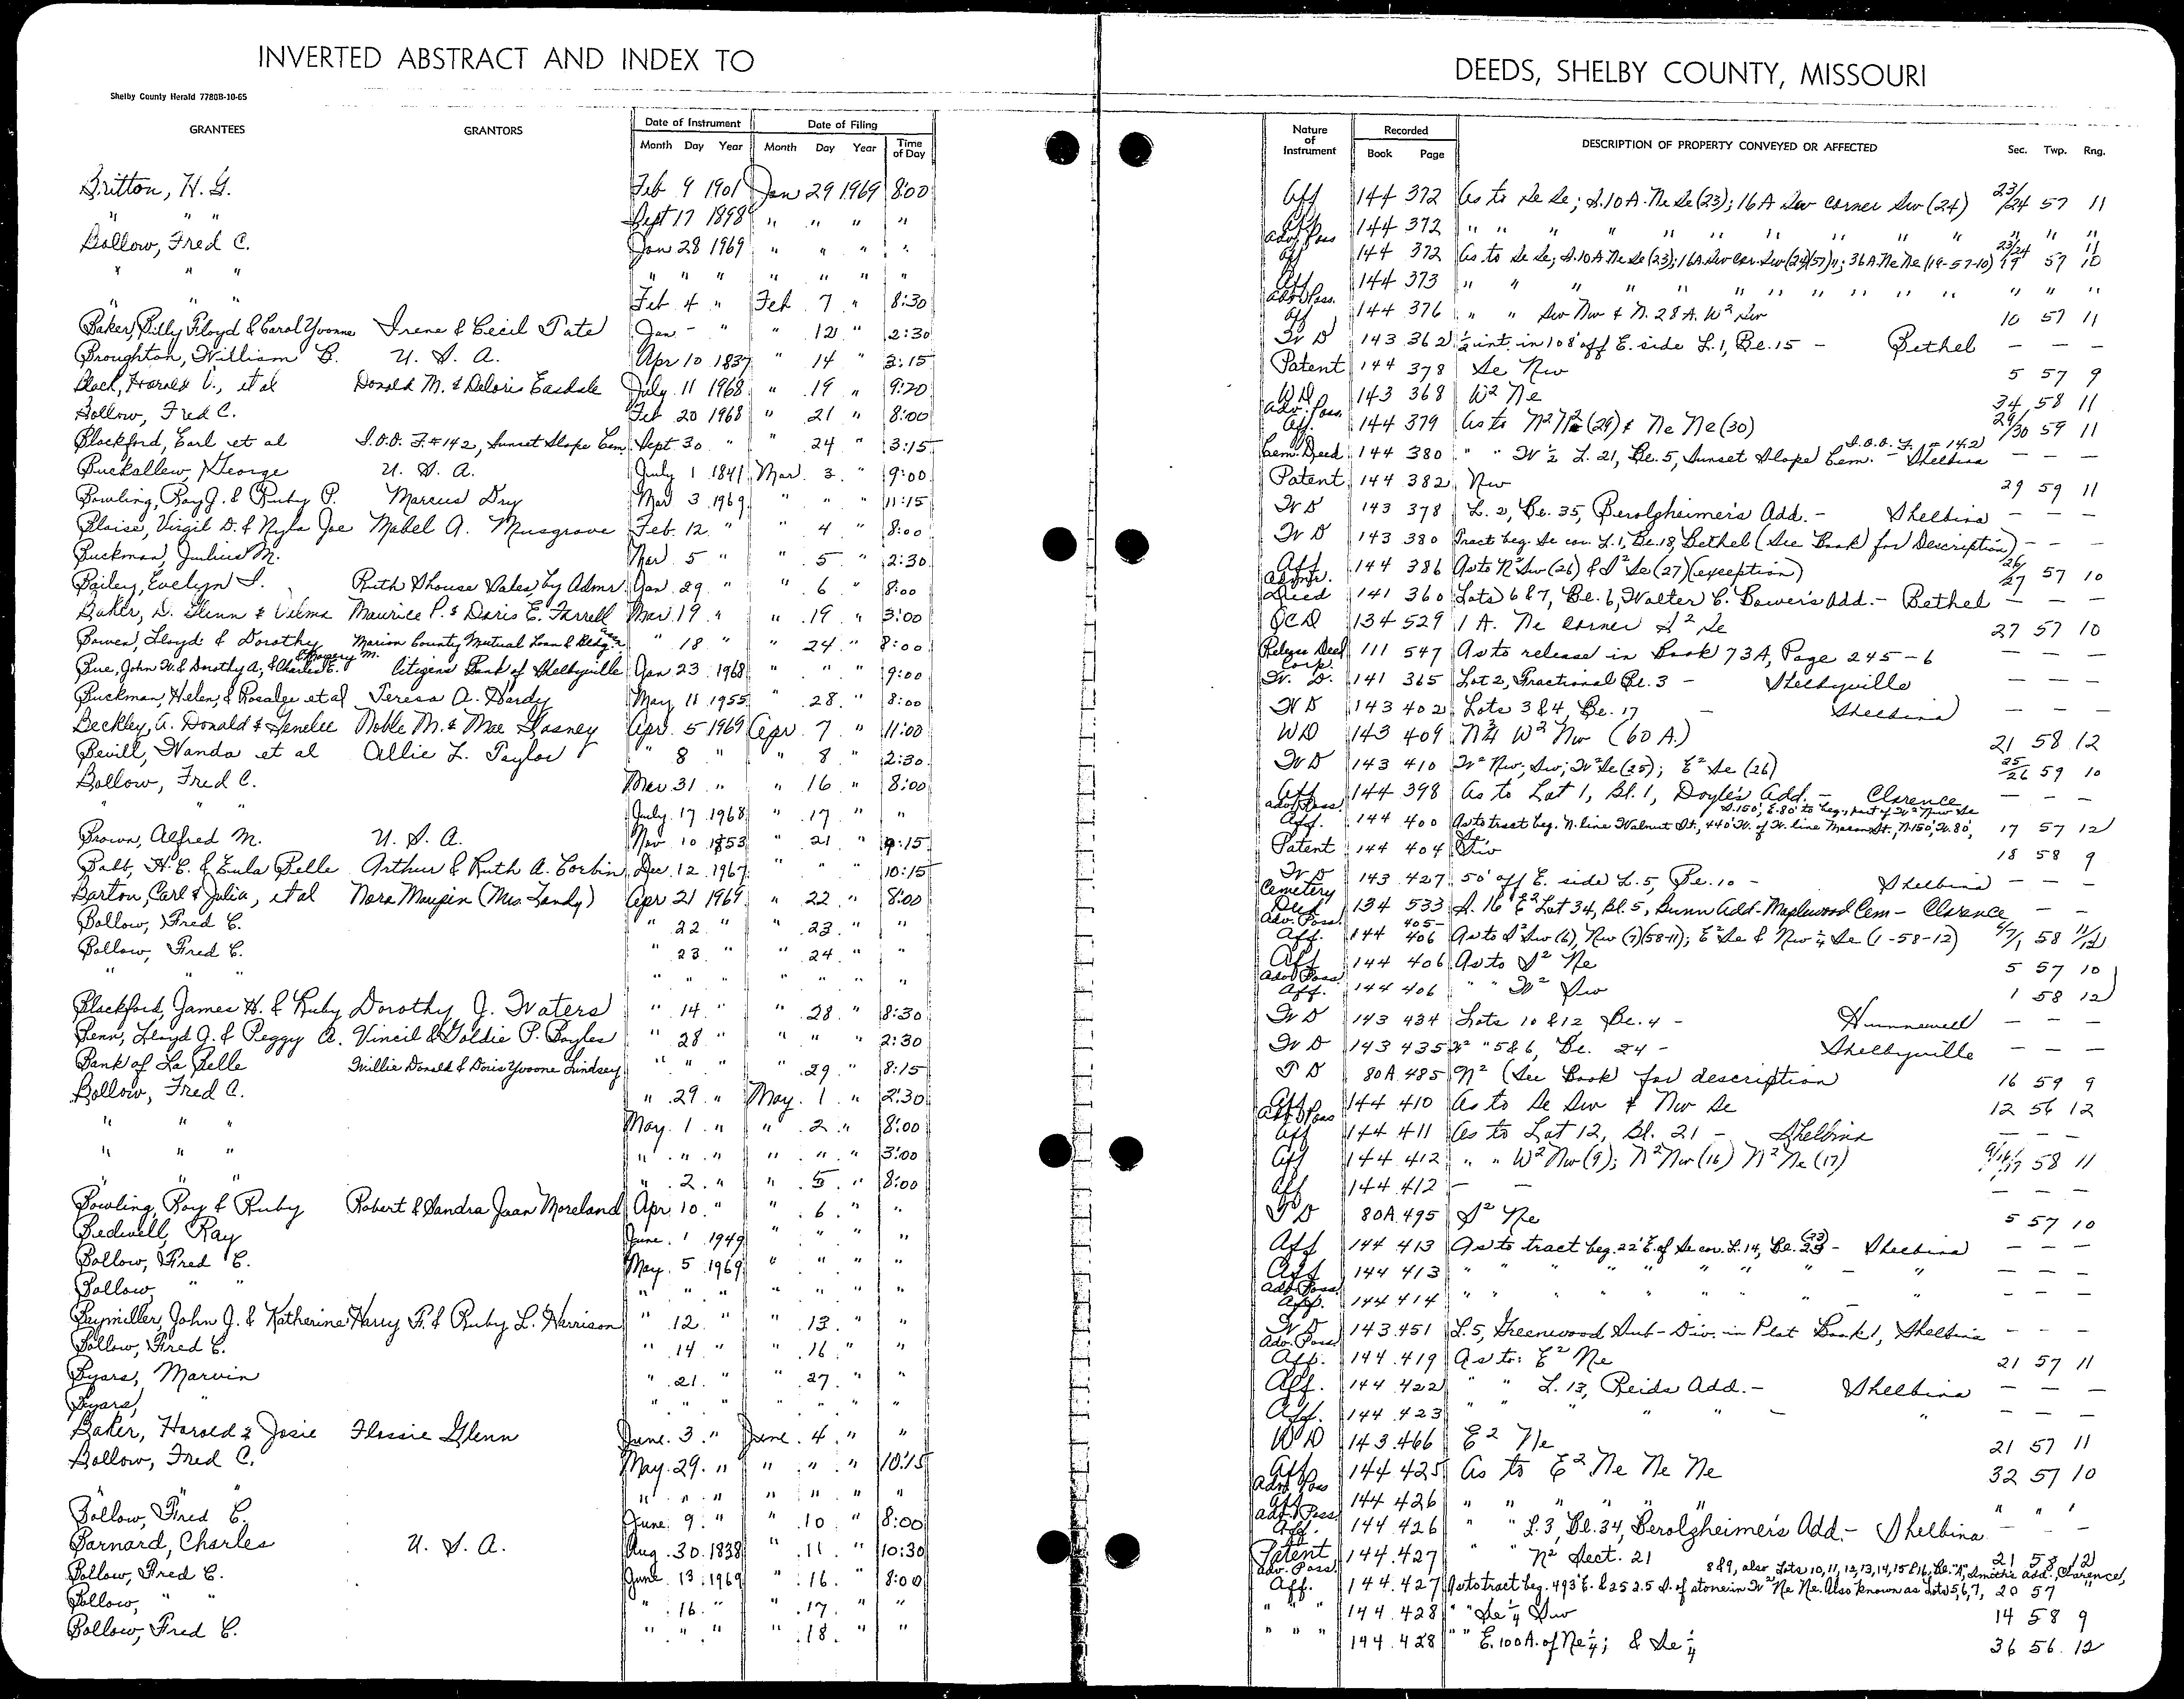 INVERTED ABSTRACT AND INDEX TO DEEDS, SHELBY COUNTY, MISSOURI
Shelby County Herald 7780B-10-65
GRANTEES GRANTORS Date of Instrument Month Day Year Date of Filing Month Day Year Time of Day Nature of Instrument Recorded Book Page DESCRIPTION OF PROPERTY CONVEYED OR AFFECTED Sec. Twp. Rng.
Britton, H. G. Feb 9 1901 Jan 29 1969 8:00 Aff 144 372 As to Se Se; S. 10 A. Ne Se (23); 16 A Sw corner Sw (24) 23/24 57 11
" " " Sept 17 1898 " " " " Aff 144 372 " " " " " " " " " " " " "
Bollow, Fred C. Jan 28 1969 " " " " Adv. Poss Aff 144 372 As to Se Se; S. 10 A Ne Se (23); 16 A Sw cor. Sw (24)(57) 11; 36 A. Ne Ne (19-57-10) 23/24 19 57 11 10
" " " " " " " " " " Aff 144 373 " " " " " " " " " " " " "
" " " Feb 4 " Feb 7 " 8:30 Adv. Poss. Aff 144 376 " " Sw Nw & N. 28 A. W² Sw 10 57 11
Baker, Billy Floyd & Carol Yvonne Irene & Cecil Tate Jan - " " 12 " 2:30 W D 143 362 ½ int. in 108' off E. side L. 1, Be. 15 - Bethel - - -
Broughton, William B. U. S. A. Apr 10 1837 " 14 " 3:15 Patent 144 378 Se Nw 5 57 9
Black, Harold V., et al Donald M. & Deloris Easdale July 11 1968 " 19 " 9:20 WD 143 368 W² Ne 34 58 11
Bollow, Fred C. Feb 20 1968 " 21 " 8:00 Adv. Poss. Aff. 144 379 As to N² N² (29) & Ne Ne (30) 29/30 59 11
Blackford, Earl et al I.O.O.F. #142, Sunset Slope Cem. Sept 30 " " 24 " 3:15 Cem. Deed 144 380 " " W ½ L. 21, Be. 5, Sunset Slope Cem. - I.O.O.F. #142) Shelbina - - -
Buckallew, George U. S. A. July 1 1841 Mar. 3 " 9:00 Patent 144 382 Nw 29 59 11
Bowling, Roy J. & Ruby P. Marcus Dry Mar 3 1969 " " " 11:15 W D 143 378 L. 2, Be. 35, Berolzheimer's Add. - Shelbina - - -
Blaise, Virgil D. & Nyla Joe Mabel A. Musgrove Feb. 12 " " 4 " 8:00 W D 143 380 Tract beg. Se cor. L. 1, Be. 18, Bethel (See Book for Description) - - -
Buckman, Julius M. Mar 5 " " 5 " 2:30 Aff 144 386 As to N² Sw (26) & S² Se (27) (exception) 26/27 57 10
Bailey, Evelyn I. Ruth Shouse Vales, by Admr Jan. 29 " " 6 " 8:00 Admr. Deed 141 360 Lots 6 & 7, Be. 6, Walter C. Bower's Add. - Bethel - - -
Baker, D. Glenn & Velma Maurice P. & Doris E. Farrell Mar 19 " " 19 " 3:00 QCD 134 529 1 A. Ne corner S² Se 27 57 10
Bowen, Floyd & Dorothy Marion County Mutual Loan & Bldg. Assn " 18 " " 24 " 8:00 Release Deed 111 547 As to release in Book 73A, Page 245-6 - - -
Bue, John W. & Dorothy A; & Charles E. & Margery M. Citizens Bank of Shelbyville Jan 23 1968 " " " 9:00 Corp. W. D. 141 365 Lot 2, Fractional Be. 3 - Shelbyville - - -
Buckman, Helen, & Rosalee et al Teresa A. Hardy May 11 1955 " 28 " 8:00 W D 143 402 Lots 3 & 4, Be. 17 - Shelbina - - -
Beckley, A. Donald & Jenelee Noble M. & Mae Gosney Apr. 5 1969 Apr. 7 " 11:00 WD 143 409 N¾ W² Nw (60 A.) 21 58 12
Bevill, Wanda et al Allie L. Taylor " 8 " " 8 " 2:30 W D 143 410 W² Nw; Sw; W² Se (25); E² Se (26) 25/26 59 10
Bollow, Fred C. Mar 31 " " 16 " 8:00 Aff 144 398 As to Lot 1, Bl. 1, Doyle's Add. - Clarence - - -
" " " July 17 1968 " 17 " " Adv. Poss. Aff. 144 400 As to tract beg. N. line Walnut St., 440' W. of W. line Macon St., N. 150', W. 80', S. 150', E. 80' to beg., part of W² Nw Se 17 57 12
Brown, Alfred M. U. S. A. Nov 10 1853 " 21 " 9:15 Patent 144 404 Sw 18 58 9
Balt, H. C. & Eula Belle Arthur & Ruth A. Corbin Dec. 12 1967 " " " 10:15 W D 143 427 50' off E. side L. 5, Be. 10 - Shelbina - - -
Barton, Carl & Julia, et al Nora Maupin (Mrs. Landy) Apr 21 1969 " 22 " 8:00 Cemetery Deed 134 533 S. 16' E² Lot 34, Bl. 5, Bunn Add-Maplewood Cem - Clarence - -
Bollow, Fred C. " 22 " " 23 " " Adv. Poss. Aff. 144 405-406 As to S² Sw (6), Nw (7) (58-11); E² Se & Nw ¼ Se (1-58-12) 6/7/1 58 11/12
Bollow, Fred C. " 23 " " 24 " " Aff 144 406 As to S² Ne 5 57 10
" " " " " " " " " " Adv. Poss. Aff. 144 406 " " W² Sw 1 58 12
Blackford, James H. & Ruby Dorothy J. Waters " 14 " " 28 " 8:30 W D 143 434 Lots 10 & 12 Be. 4 - Hunnewell - - -
Benn, Lloyd J. & Peggy A. Vincil & Goldie P. Boyles " 28 " " " " 2:30 W D 143 435 W² " 5 & 6, Be. 24 - Shelbyville - - -
Bank of La Belle Willie Donald & Doris Yvonne Lindsey " " " " 29 " 8:15 T D 80A 485 N² (See Book for description 16 59 9
Bollow, Fred C. " 29 " May. 1 " 2:30 Aff 144 410 As to Se Sw & Nw Se 12 56 12
" " " May. 1 " " 2 " 8:00 Adv. Poss Aff 144 411 As to Lot 12, Bl. 21 - Shelbina - - -
" " " " " " " " " 3:00 Aff 144 412 " " W² Nw (9); N² Nw (16) N² Ne (17) 9/16/17 58 11
" " " " 2 " " 5 " 8:00 Aff 144 412 - - - - -
Bowling, Roy & Ruby Robert & Sandra Jean Moreland Apr. 10 " " 6 " " T D 80A 495 S² Ne 5 57 10
Bedwell, Ray June 1 1949 " " " " Aff 144 413 As to tract beg. 22' E. of Se cor. L. 14, Be. 23 (23) - Shelbina - - -
Bollow, Fred C. May. 5 1969 " " " " Aff 144 413 " " " " " " " - " - - -
Bollow, " " " " " " " " " Adv. Poss. Aff. 144 414 " " " " " " - " - - -
Beymiller, John J. & Katherine Harry F. & Ruby L. Harrison " 12 " " 13 " " W D 143 451 L. 5, Greenwood Sub-Div. in Plat Book 1, Shelbina - - -
Bollow, Fred C. " 14 " " 16 " " Adv. Poss. Aff. 144 419 As to: E² Ne 21 57 11
Byars, Marvin " 21 " " 27 " " Aff. 144 422 " " L. 13, Reids Add. - Shelbina - - -
Byars, " " " " " " " " Aff. 144 423 " " " " " - " - - -
Baker, Harold & Josie Flossie Glenn June 3 " June 4 " " WD 143 466 E² Ne 21 57 11
Bollow, Fred C. May 29 " " " " 10:15 Aff 144 425 As to E² Ne Ne Ne 32 57 10
" " " " " " " Adv. Poss Aff 144 426 " " " " " " " " "
Bollow, Fred C. June 9 " " 10 " 8:00 Adv. Poss Aff. 144 426 " " L. 3, Bl. 34, Berolzheimer's Add - Shelbina - - -
Barnard, Charles U. S. A. Aug. 30 1838 " 11 " 10:30 Patent 144 427 " " N² Sect. 21 21 58 12
Bollow, Fred C. June 13 1969 " 16 " 8:00 Adv. Poss. Aff. 144 427 As to tract beg. 493' E. & 252.5 S. of stone in W² Ne Ne. Also known as Lots 5, 6, 7, 8 & 9, also Lots 10, 11, 12, 13, 14, 15 & 16, Be. "A", Smith's add., Clarence, 20 57 "
Bollow, " " " 16 " " 17 " " " " " 144 428 " " Se ¼ Sw 14 58 9
Bollow, Fred C. " " " " 18 " " " " " 144 428 " " E. 100 A. of Ne ¼; & Se ¼ 36 56 12